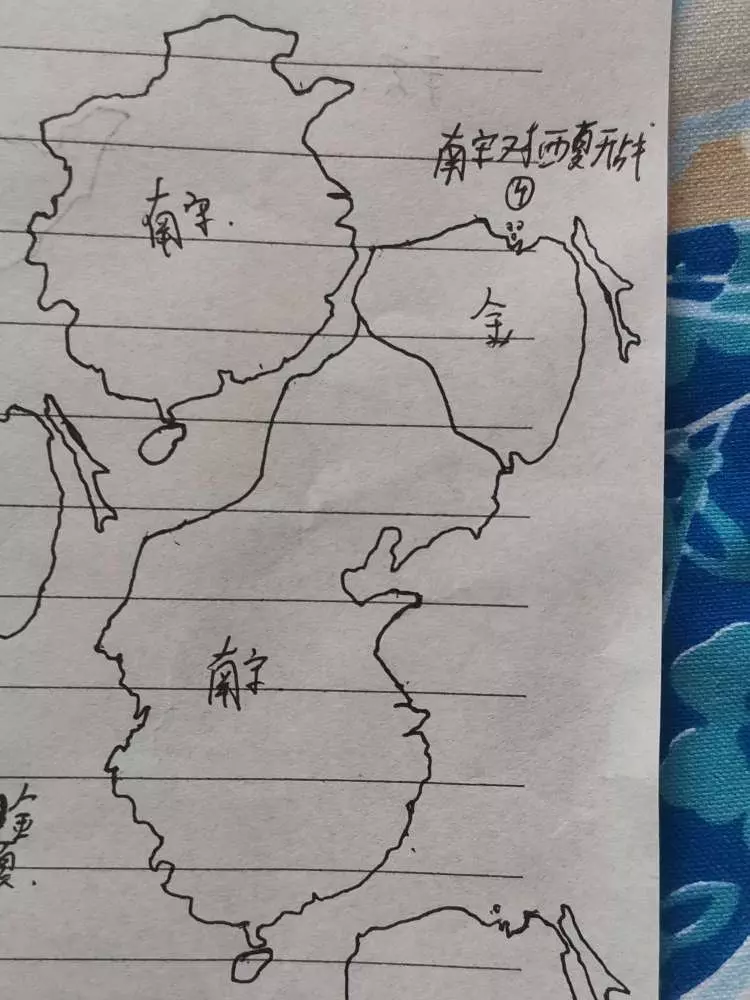 南宋对西夏开战
④
南宋.
金
南宋
金
夏.